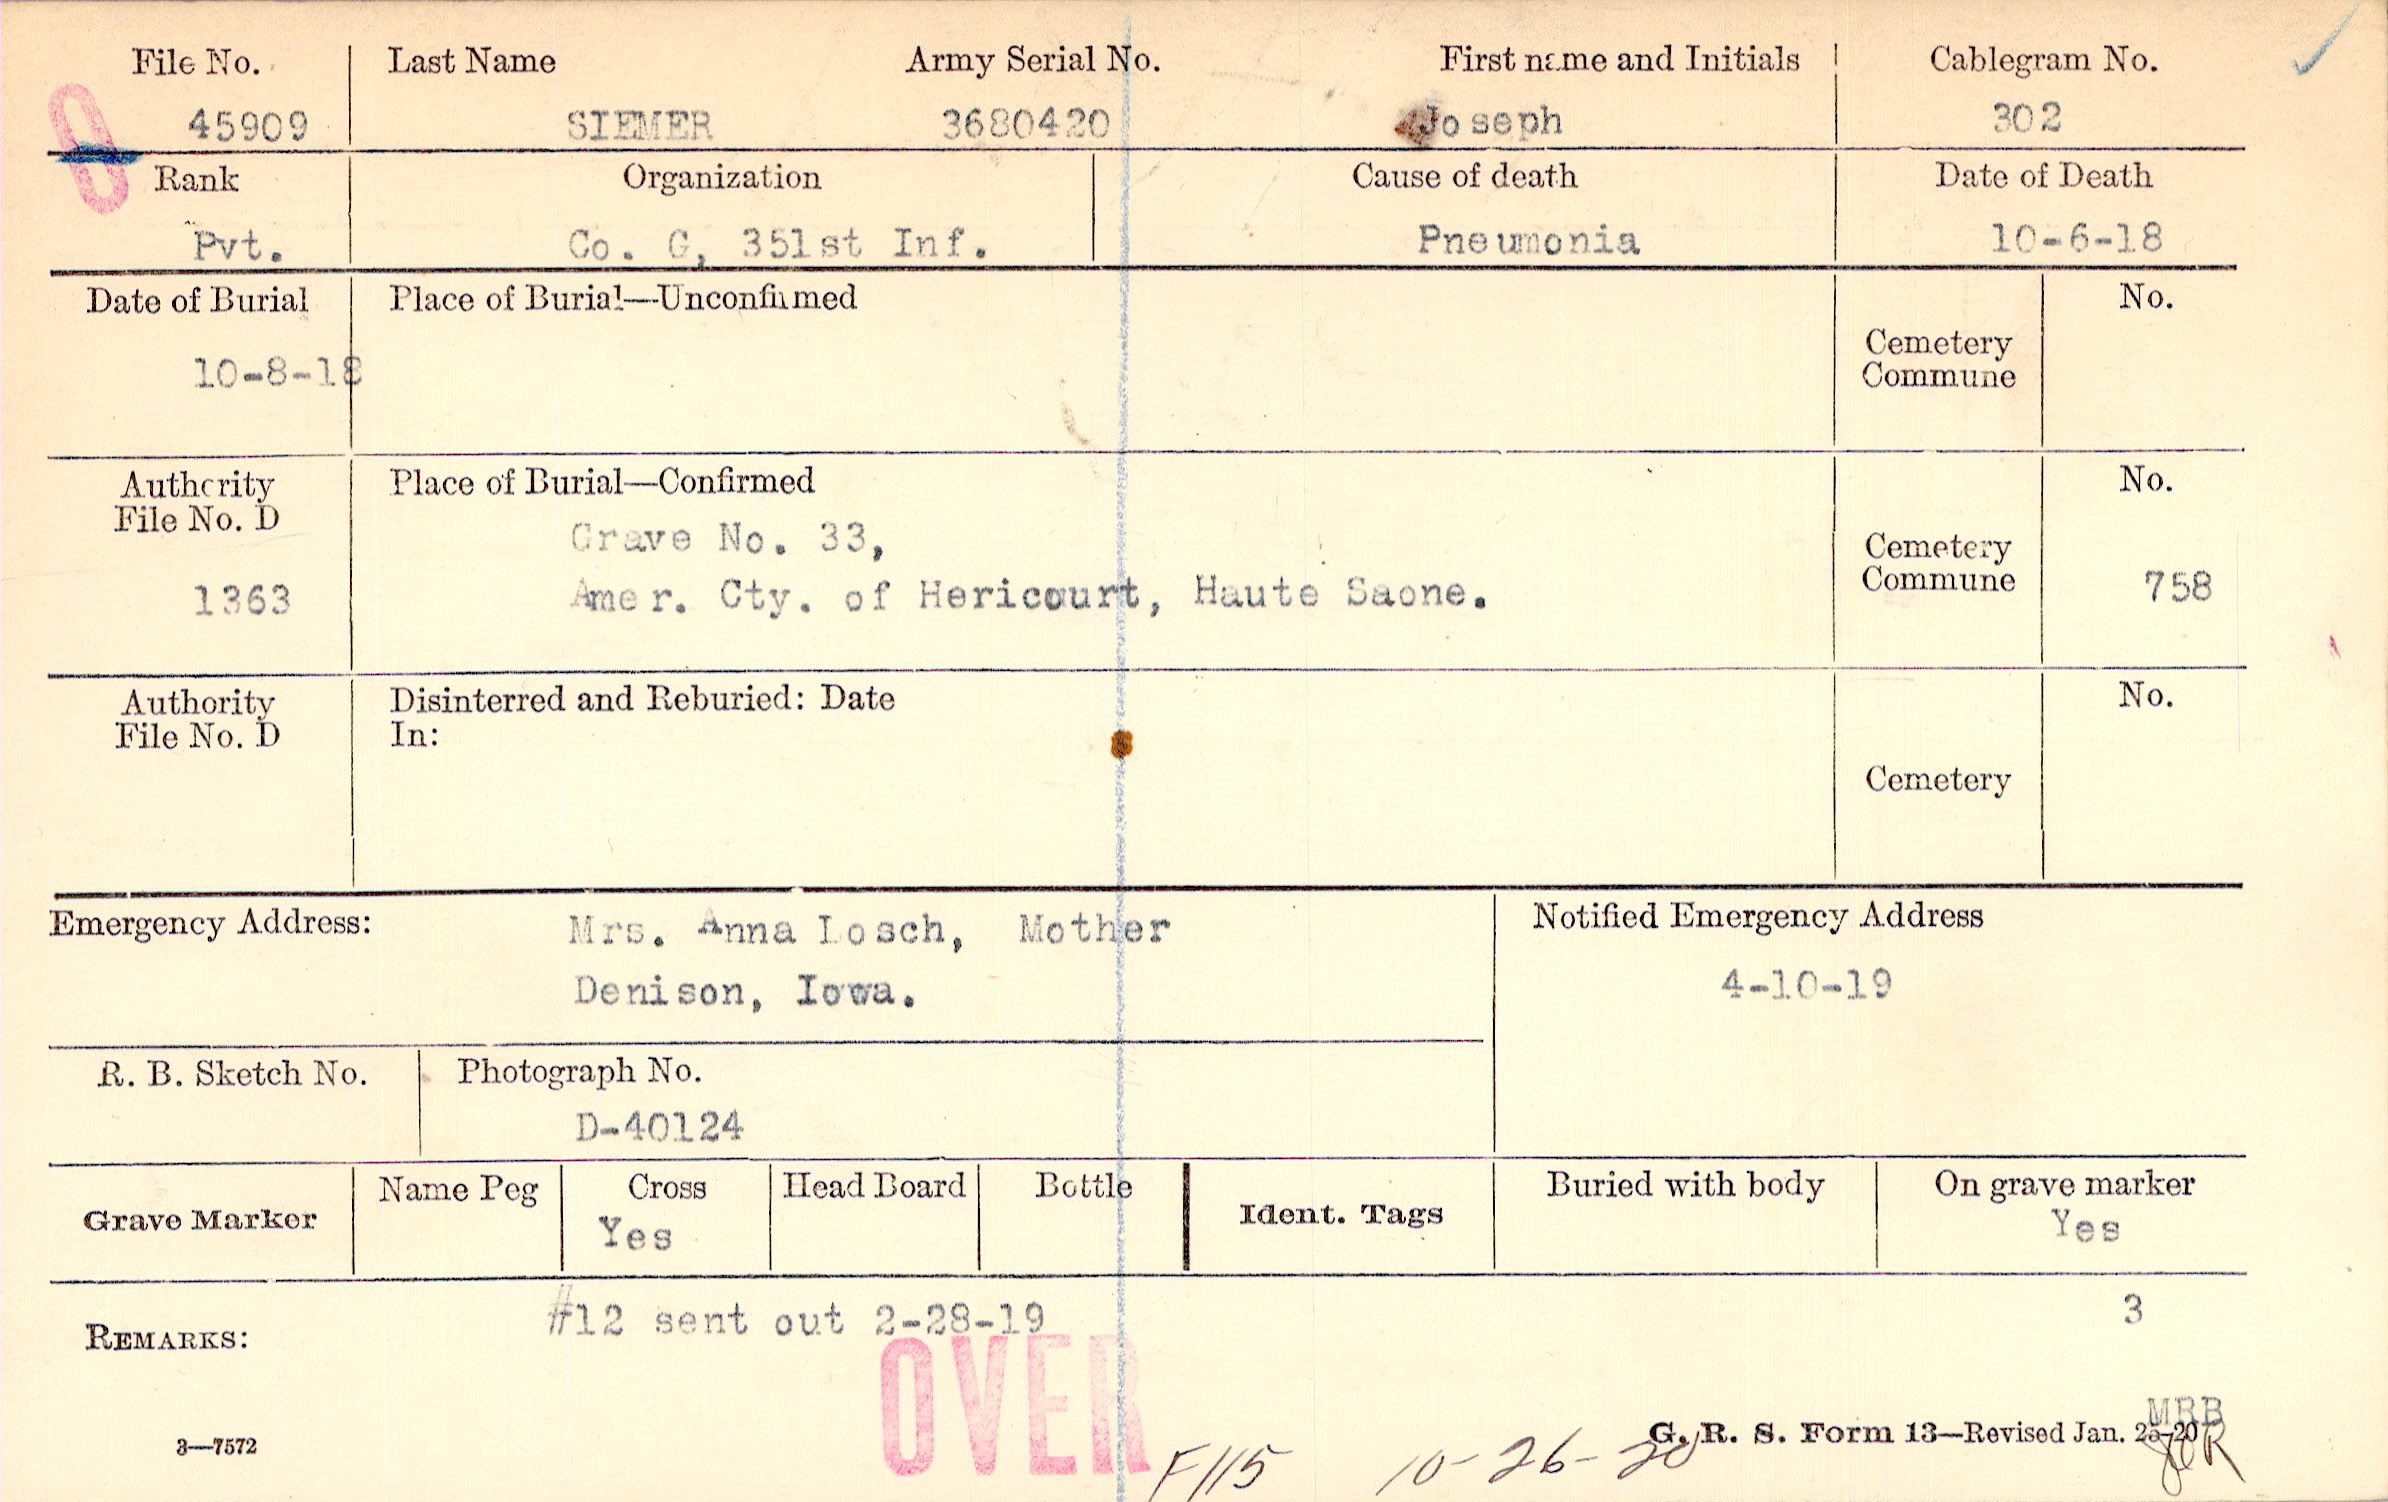 File No. Last Name Army Serial No. First name and Initials Cablegram No.
45909 SIEMER 3680420 Joseph 302
Rank Organization Cause of death Date of Death
Pvt. Co. G, 351st Inf. Pneumonia 10-6-18
Date of Burial Place of Burial—Unconfirmed No.
10-8-18 Cemetery
Commune
Authority Place of Burial—Confirmed No.
File No. D Grave No. 33, Cemetery
1363 Amer. Cty. of Hericourt, Haute Saone. Commune 758
Authority Disinterred and Reburied: Date No.
File No. D In:
Cemetery
Emergency Address: Mrs. Anna Losch, Mother Notified Emergency Address
Denison, Iowa. 4-10-19
R. B. Sketch No. Photograph No.
D-40124
Grave Marker Name Peg Cross Head Board Bottle Ident. Tags Buried with body On grave marker
Yes Yes
REMARKS: #12 sent out 2-28-19 3
OVER
MRB
3—7572 G. R. S. Form 13—Revised Jan. 25-20
F115 10-26-20